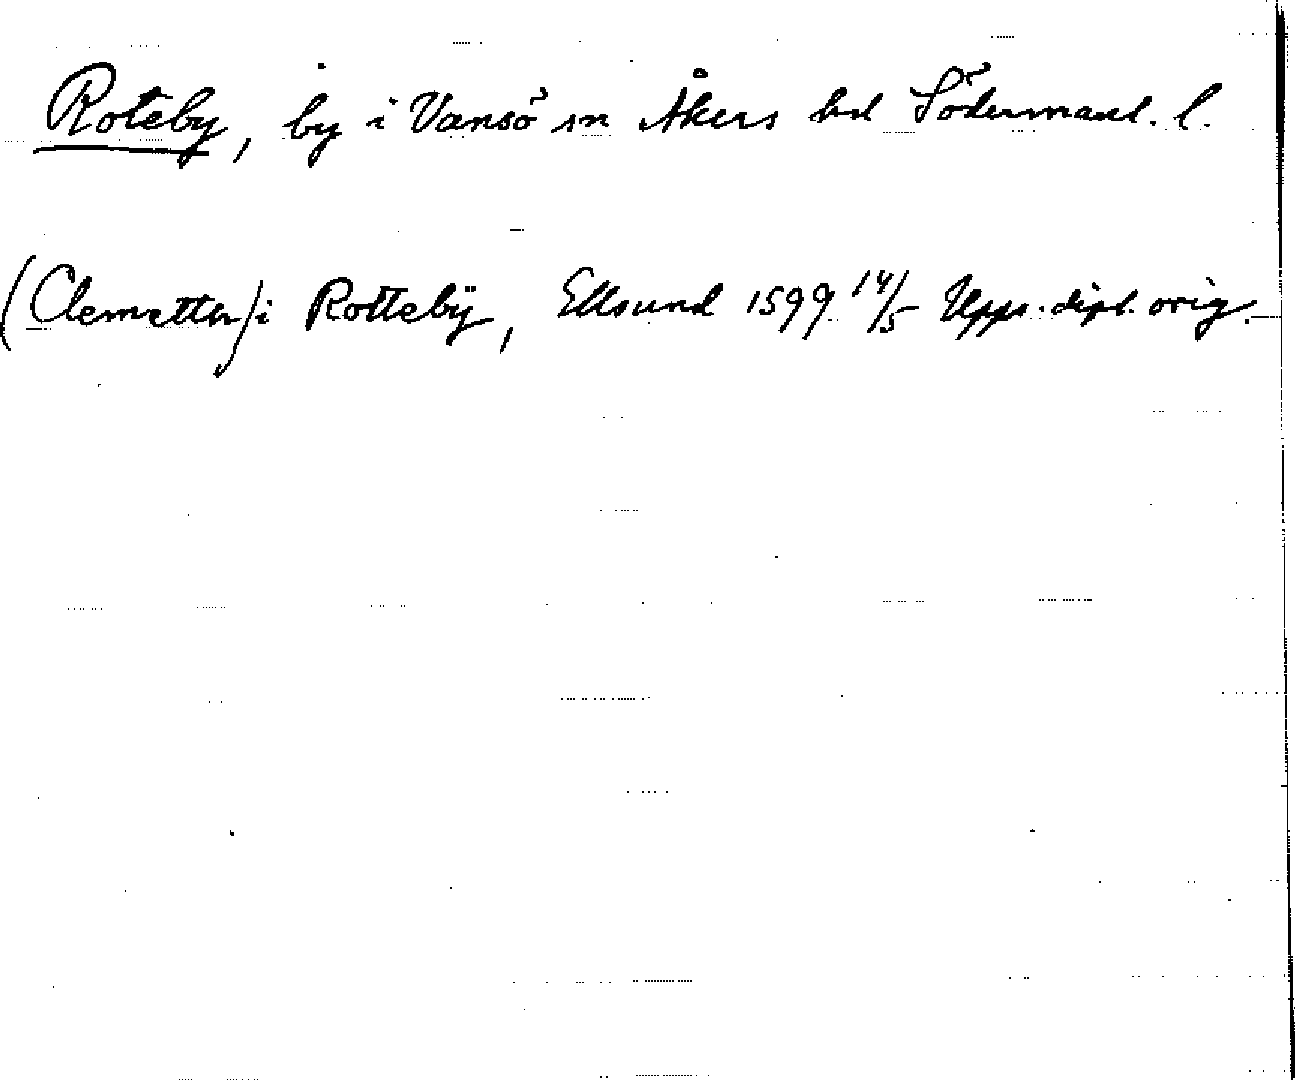 Roteby, by i Vansö sn Åkers hd Södermanl. l.
(Clemetter) i Rottebÿ, Ellsund 1599 14/5 Upps. dipl. orig.